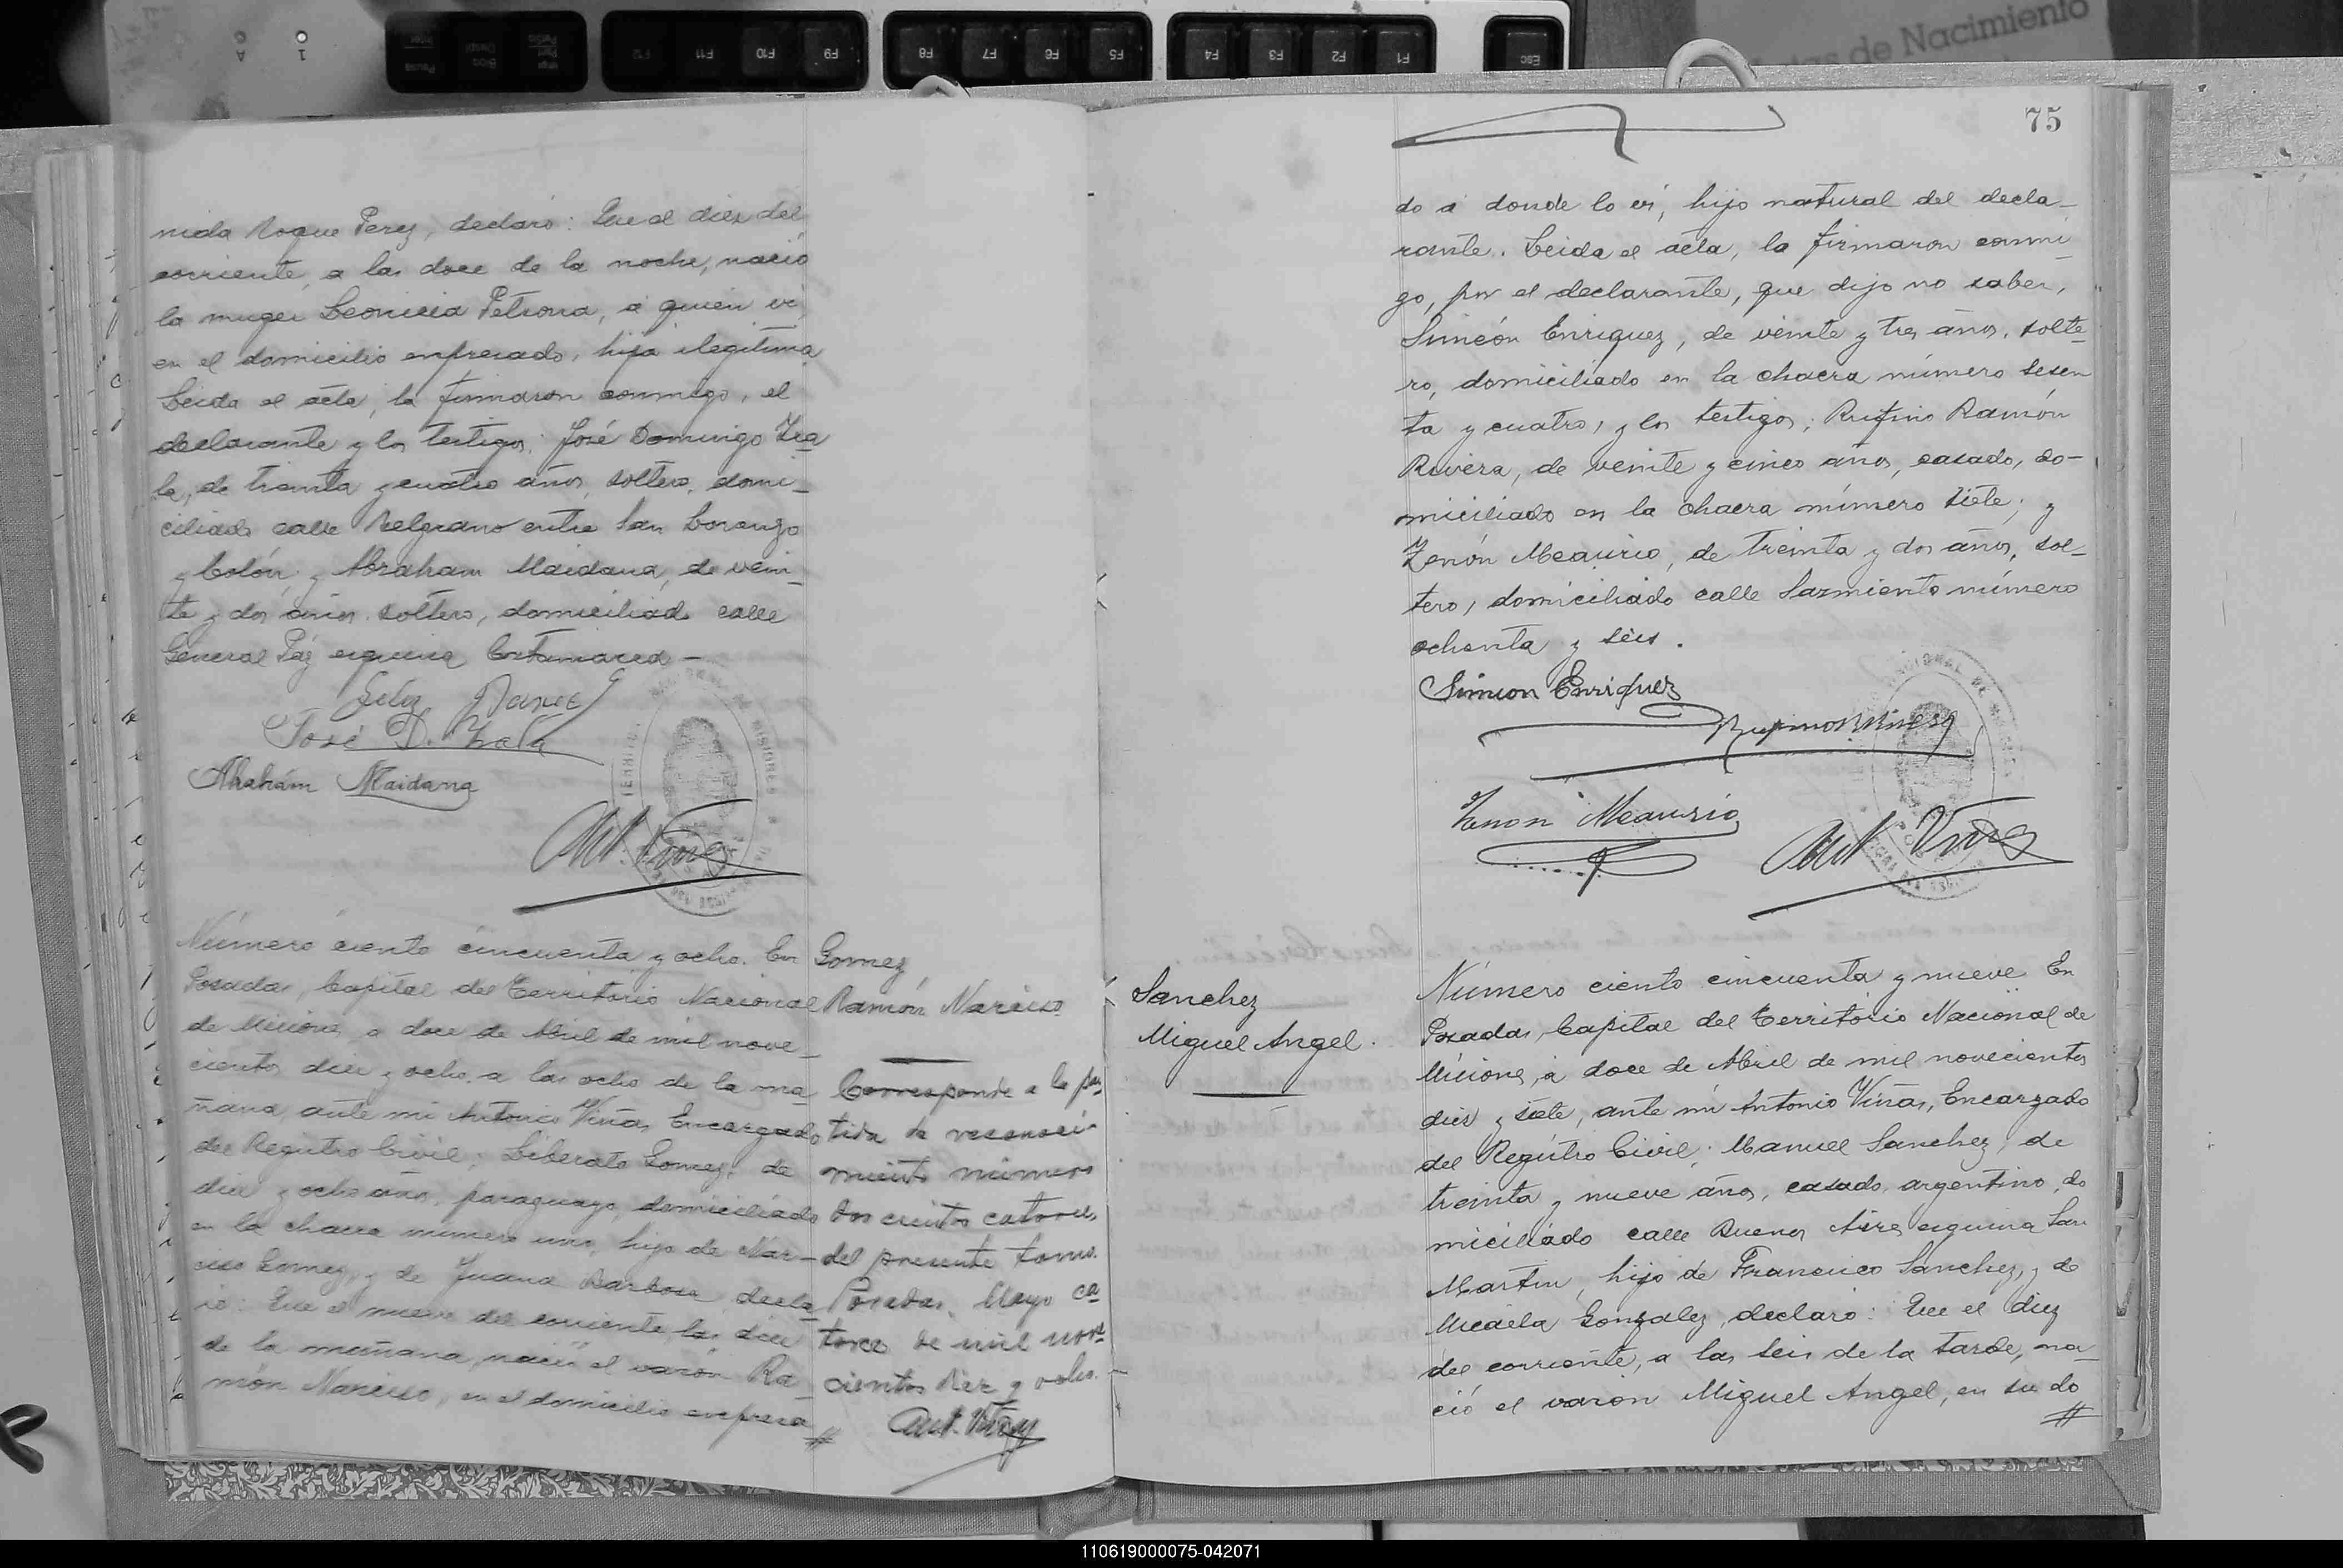 75
nida Roque Perez, declaró: Que el diez del
corriente, a las doce de la noche, nació
la muger Leonicia Petrona, a quien vi,
en el domicilio expresado, hija ilegitima
Leida el acta, la firmaron conmigo, el
declarante y los testigos: José Domingo Zra
la, de treinta y cuatro años, soltero, domi-
ciliado calle Belgrano entre San Lorenzo
y Colón; y Abraham Maidana, de vein-
te y dos años, soltero, domiciliado calle
General Páz esquina Catamarca -
José D.
Abrahám Maidana
Ant. Viñas
Número ciento cincuenta y ocho. En
Posadas, Capital del Territorio Nacional
de Misiones, a doce de Abril de mil nove-
cientos diez y ocho, a las ocho de la ma-
ñana, ante mi Antonio Viñas, Encargado
del Registro Civil; Liberato Gomez, de
diez y ocho años, paraguayo, domiciliado
en la chacra número uno, hijo de Nar-
ciso Gomez, y de Juana Barboza, decla
ró: Que el nueve del corriente, las diez
de la mañana, nació el varón Ra
món Narciso, en el domicilio expresa
Gomez
Ramón Narciso
Corresponde a la par
tida de reconoci-
miento número
doscientos catorce,
del presente tomo.
Posadas, Mayo ca
torce de mil nove
cientos diez y ocho.-
Ant. Viñas
do a donde lo ví, hijo natural del decla-
rante. Leida el acta, la firmaron conmi-
go, por el declarante, que dijo no saber,
Simeón Enriquez, de veinte y tres años, solte-
ro, domiciliado en la chacra número sesen
ta y cuatro, y los testigos; Rufino Ramón
Rivera, de veinte y cinco años, casado, do-
miciliado en la chacra número siete; y
Zenón Meaurio, de treinta y dos años, sol-
tero, domiciliado calle Sarmiento número
ochenta y seis.
Simeon Enriquez
Zenon Meaurio
Ant Viñas
Sanchez
Miguel Angel.
Número ciento cincuenta y nueve En
Posadas, Capital del Territorio Nacional de
Misiones, a doce de Abril de mil novecientos
diez y siete, ante mi Antonio Viñas, Encargado
del Registro Civil; Manuel Sanchez, de
treinta y nueve años, casado, argentino, do
miciliado calle Buenos Aires esquina San
Martin, hijo de Francisco Sanchez, y de
Micaela Gonzalez, declaró: Que el diez
del corriente, a las seis de la tarde, na-
ció el varón Miguel Angel, en su do
110619000075-042071